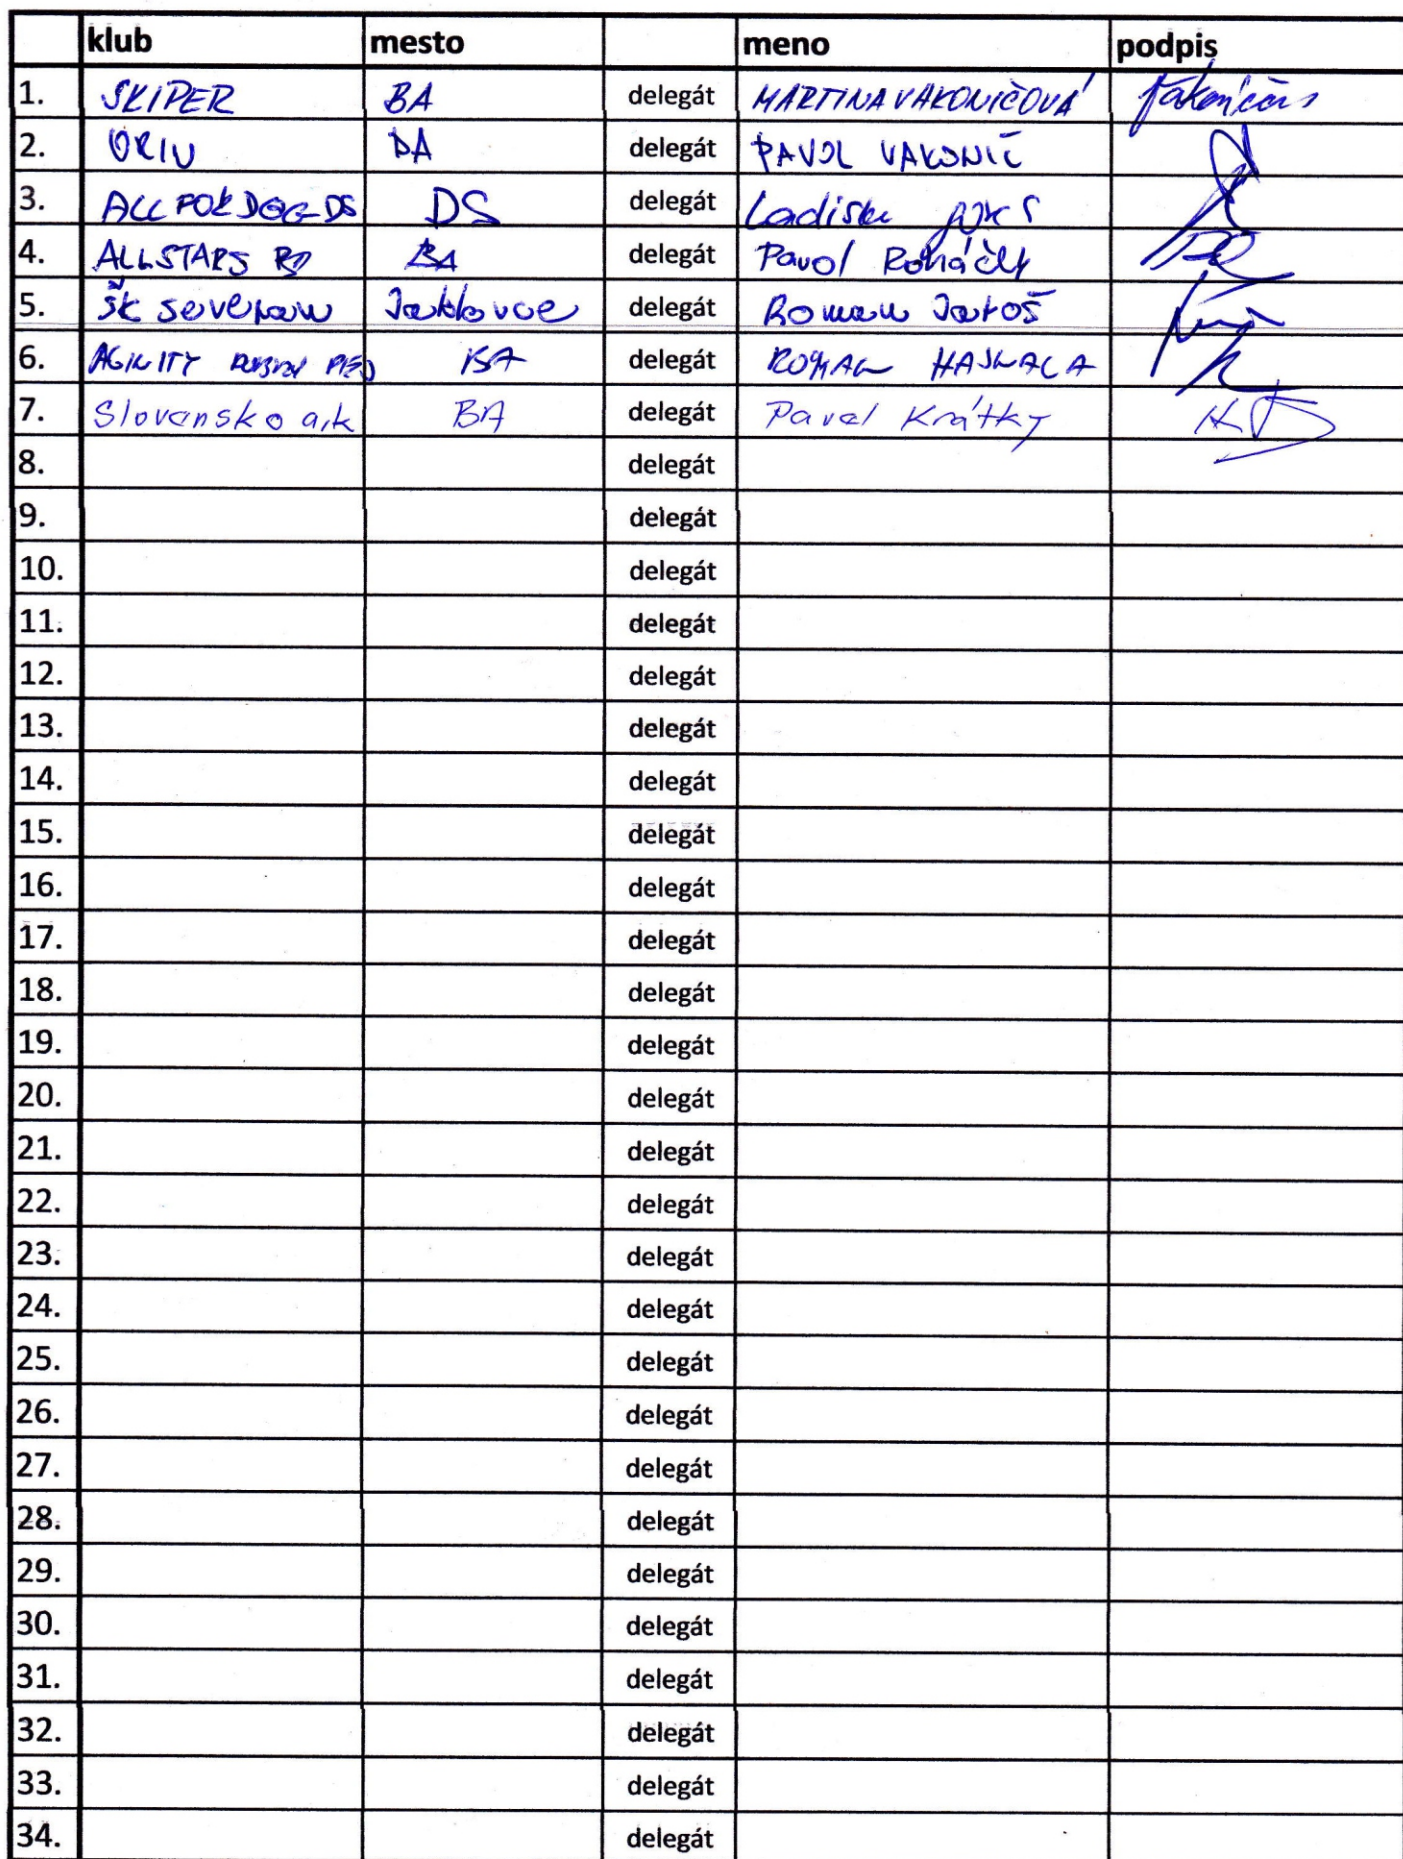 klub mesto meno podpis
1. SKIPER BA delegát MARTINA VAKONIČOVÁ
2. delegát PAVOL VAKONIČ
3. ALL FOR DOG-DS DS delegát
4. ALLSTARS BA delegát Pavol Roháčik
5. ŠK Jaklovce delegát Roman Jaroš
6. AGILITY BA delegát ROMAN
7. Slovansko a.k BA delegát Pavel Krátky
8. delegát
9. delegát
10. delegát
11. delegát
12. delegát
13. delegát
14. delegát
15. delegát
16. delegát
17. delegát
18. delegát
19. delegát
20. delegát
21. delegát
22. delegát
23. delegát
24. delegát
25. delegát
26. delegát
27. delegát
28. delegát
29. delegát
30. delegát
31. delegát
32. delegát
33. delegát
34. delegát